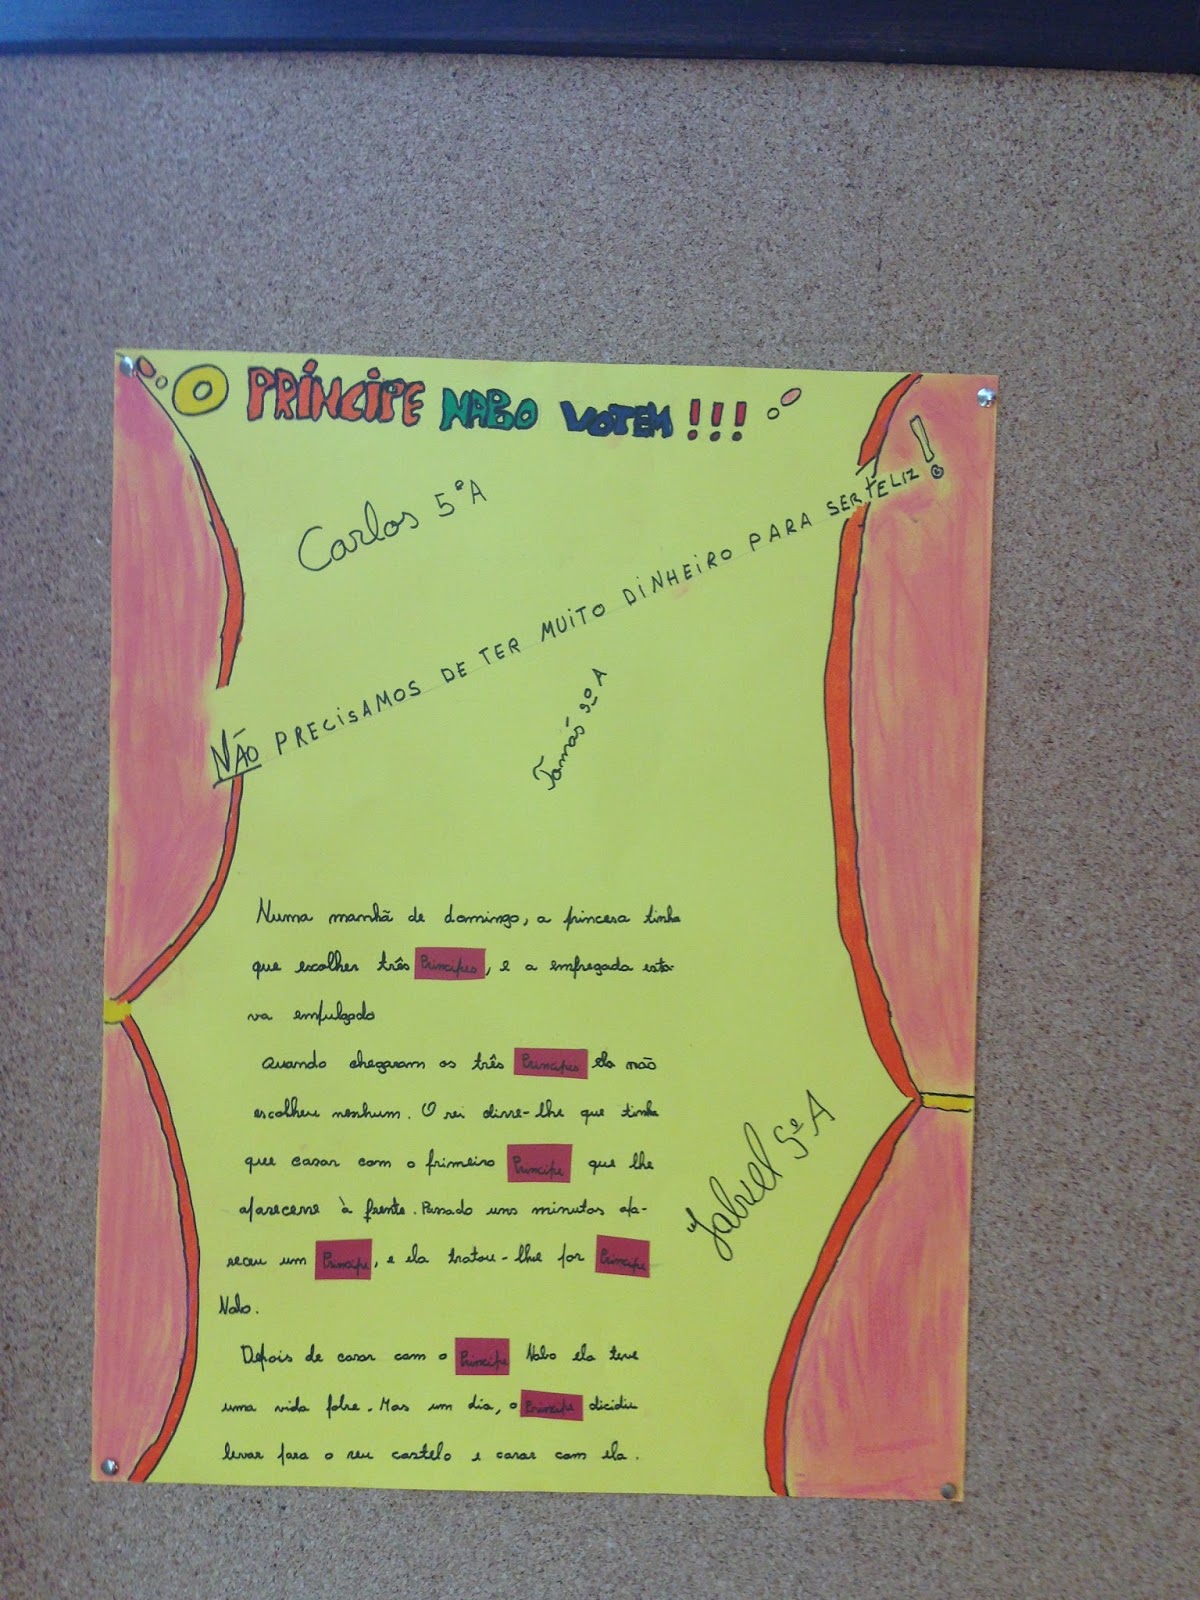 O PRÍNCIPE NABO VOTEM !!!
Carlos 5ºA
NÃO PRECISAMOS DE TER MUITO DINHEIRO PARA SER FELIZ!
Tomás 5ºA
Numa manhã de domingo, a princesa tinha
que escolher três Principes, e a empregada esta-
va empulgado
Quando chegaram os três Principes ela não
escolheu nenhum. O rei disse-lhe que tinha
que casar com o primeiro Principe que lhe
aparecesse à frente. Passado uns minutos apa-
receu um Principe, e ela tratou-lhe por Principe
Nabo.
Depois de casar com o Principe Nabo ela teve
uma vida pobre. Mas um dia, o Principe dicidiu
levar para o seu castelo e casar com ela.
Gabriel 5ºA